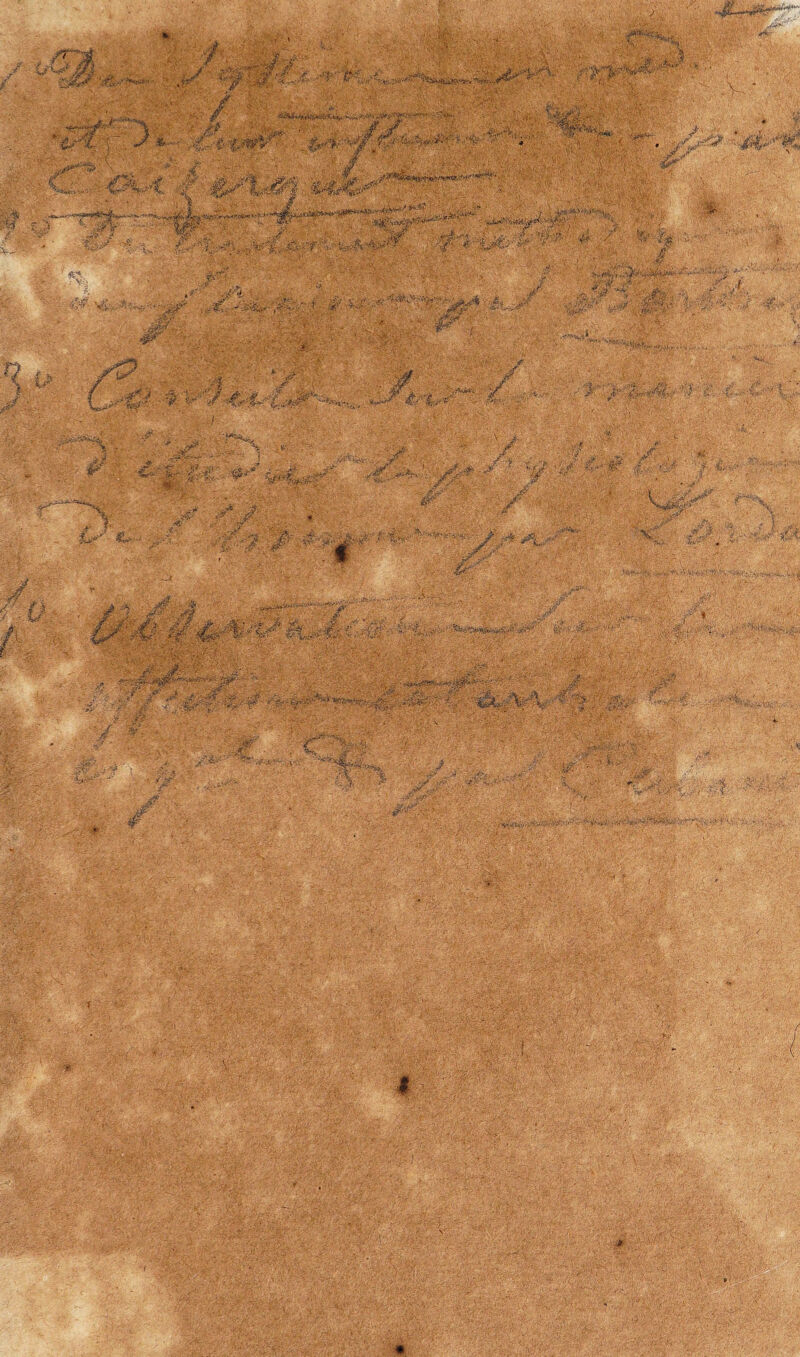 1° Des Systêmes en med.
et de leur influence &c - par
Caizergues
2° Du traitement méthodique
des fluxions par Barthez
3° Conseils sur la manière
d'étudier la physiologie
de l'homme par Lorda
4° Observations sur les
affections catarrhales
en gal & par Cabanis